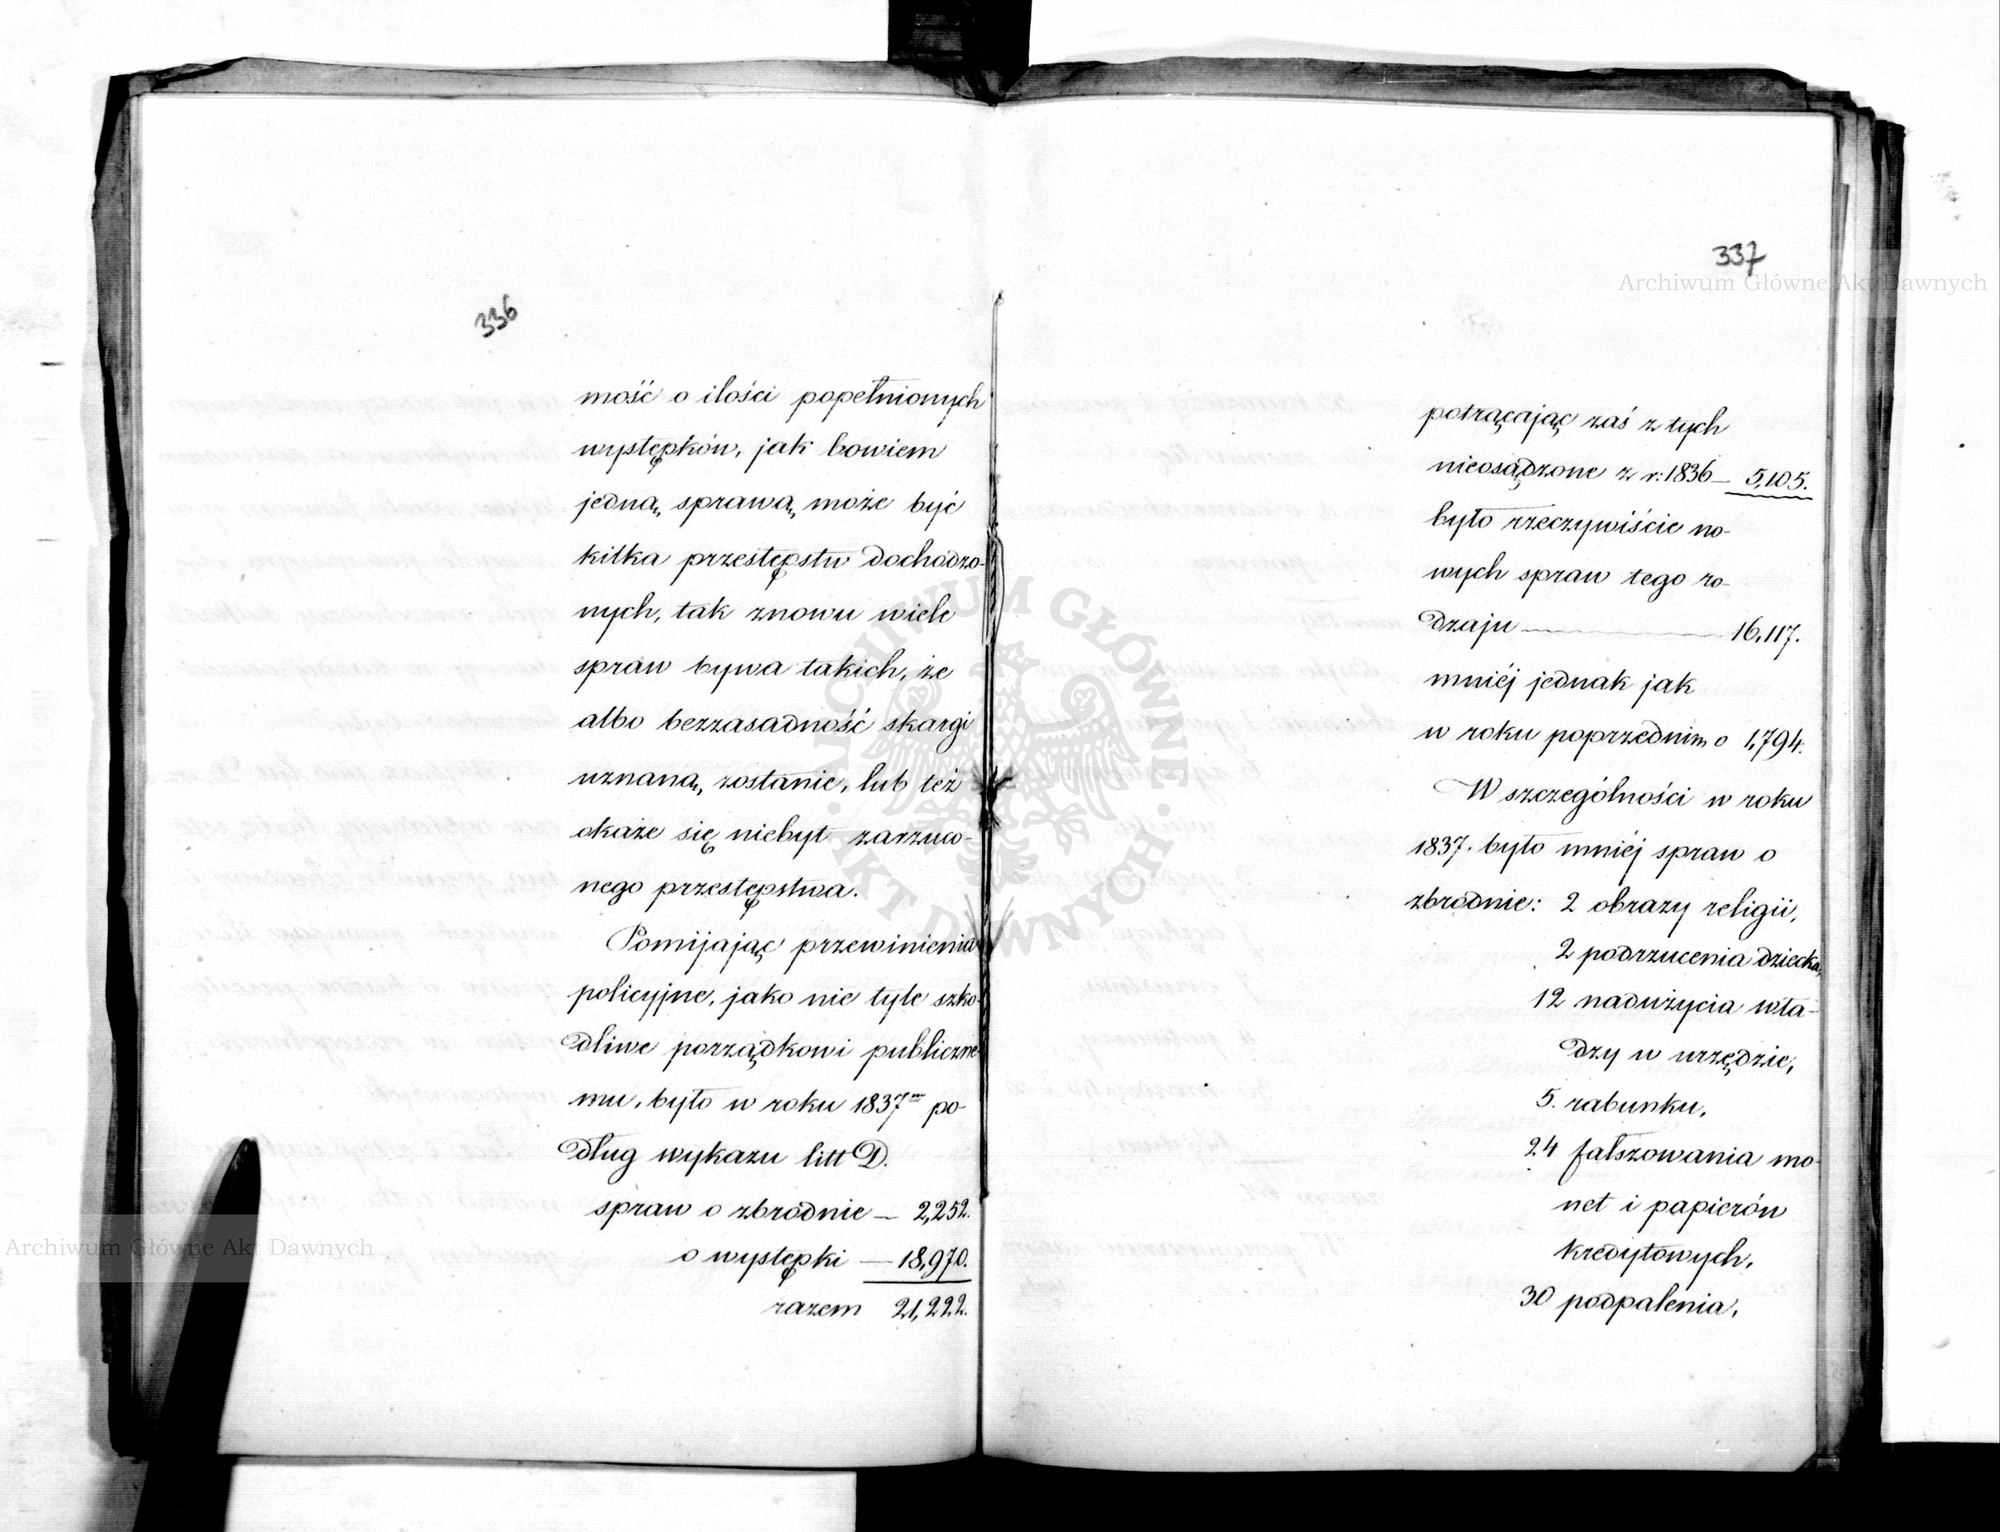 336
mość o ilości popełnionych
występków, jak bowiem
jedną sprawą może być
kilka przestępstw dochodzo-
nych, tak znowu wiele
spraw bywa takich, że
albo bezzasadność skargi
uznaną zostanie, lub też
okaże się niebyt zarzuco-
nego przestępstwa.
Pomijając przewinienia
policyjne, jako nie tyle szko-
dliwe porządkowi publiczne-
mu, było w roku 1837m po-
dług wykazu litt D.
spraw o zbrodnie — 2,252.
o występki — 18,970.
razem 21,222.
337
potrącając zaś z tych
nieosądzone z r: 1836 — 5,105.
było rzeczywiście no-
wych spraw tego ro-
dzaju — 16,117.
mniéj jednak jak
w roku poprzednim o 1,794.
W szczególności w roku
1837. było mniéj spraw o
zbrodnie: 2 obrazy religii,
2 podrzucenia dziecka,
12 nadużycia wła-
dzy w urzędzie,
5. rabunku,
24 fałszowania mo-
net i papierów
kredytowych,
30 podpalenia,
Archiwum Główne Akt Dawnych
Archiwum Główne Akt Dawnych
ARCHIWUM GŁÓWNE · AKT DAWNYCH ·